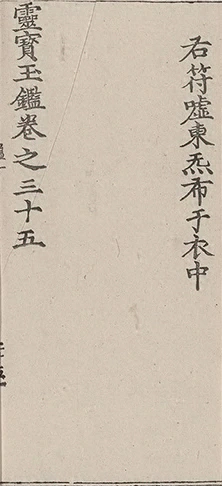 右符噓東炁布于衣中
靈寶玉鑑卷之三十五